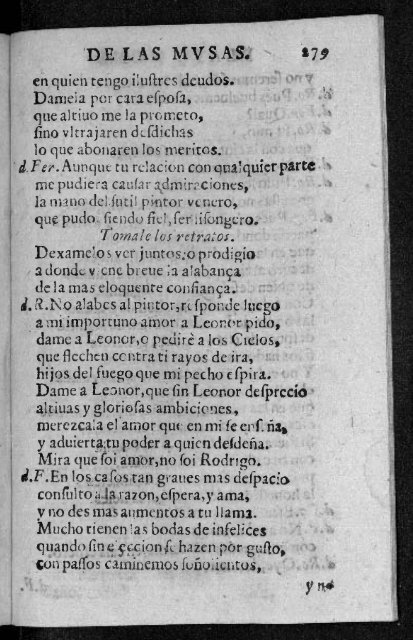 DE LAS MVSAS. 279
en quien tengo ilustres deudos.
Damela por cara esposa,
que altiuo me la prometo,
sino vltrajaren desdichas
lo que abonaren los meritos.
d.Fer. Aunque tu relacion con qualquier parte
me pudiera causar admiraciones,
la mano del sutil pintor venero,
que pudo, siendo fiel, ser lisongero.
Tomale los retratos.
Dexamelos ver juntos, o prodigio
a donde viene breue la alabança
de la mas eloquente confiança.
d.R. No alabes al pintor, responde luego
a mi importuno amor a Leonor pido,
dame a Leonor, o pedirè a los Cielos,
que flechen contra ti rayos de ira,
hijos del fuego que mi pecho espira.
Dame a Leonor, que sin Leonor desprecio
altiuas y gloriosas ambiciones,
merezcala el amor que en mi se enseña,
y aduierta tu poder a quien desdeña.
Mira que soi amor, no soi Rodrigo.
d.F. En los casos tan graues mas despacio
consulto a la razon, espera, y ama,
y no des mas aumentos a tu llama.
Mucho tienen las bodas de infelices
quando sin eleccion se hazen por gusto,
con passos caminemos soñolientos,
y no